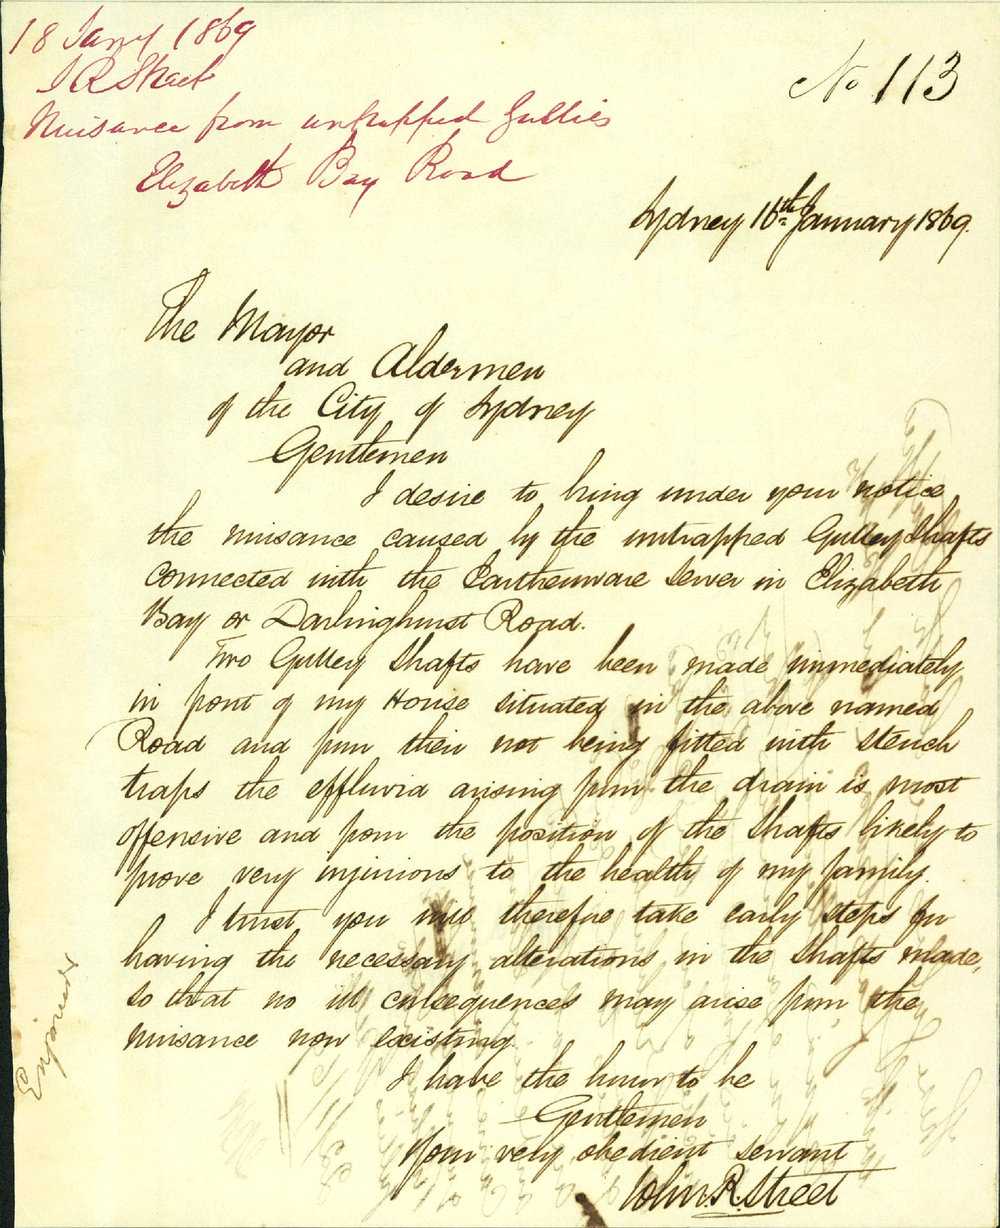 18 Jany 1869
J R Street
Nuisance from untrapped Gullies
Elizabeth Bay Road
No 113
Sydney 16th January 1869.
The Mayor
and Aldermen
of the City of Sydney
Gentlemen
I desire to bring under your notice
the nuisance caused by the untrapped Gulley Shafts
connected with the Earthenware sewer in Elizabeth
Bay or Darlinghurst Road.
Two Gulley Shafts have been made immediately
in front of my House situated in the above named
Road and from their not being fitted with stench
traps the effluvia arising from the drain is most
offensive and from the position of the Shafts likely to
prove very injurious to the health of my family.
I trust you will therefore take early steps for
having the necessary alterations in the Shafts made,
so that no ill consequences may arise from the
nuisance now existing.
I have the honor to be
Gentlemen
Your very obedient servant
John R. Street
Engineer